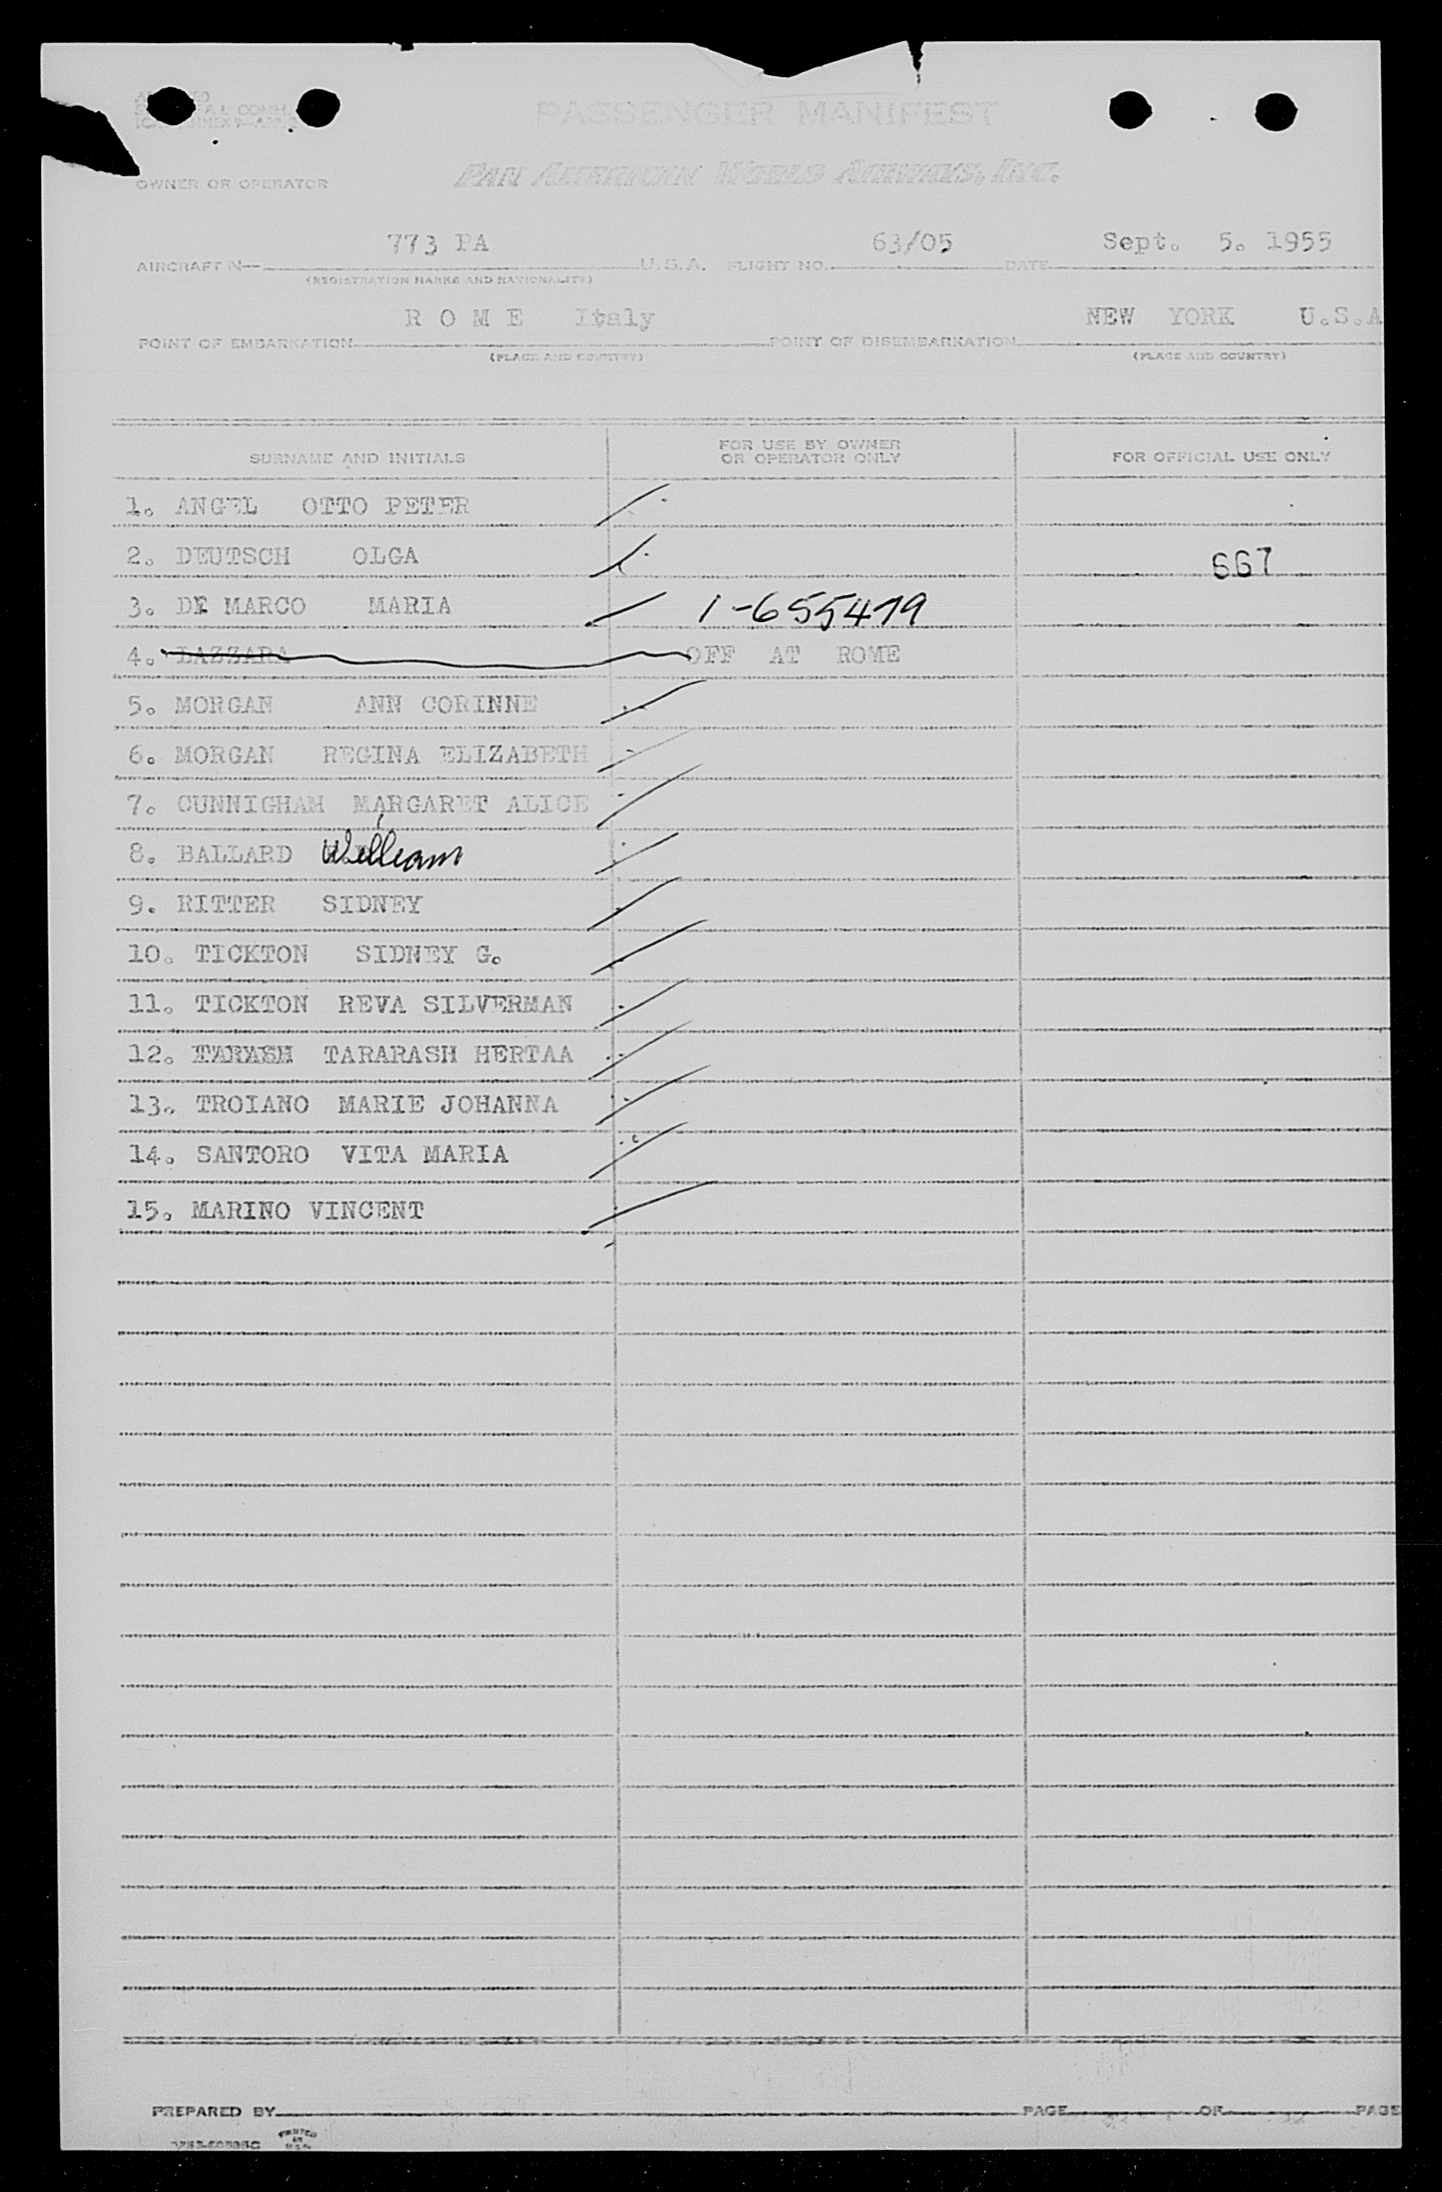 PASSENGER MANIFEST
OWNER OR OPERATOR PAN AMERICAN WORLD AIRWAYS, INC.
773 PA 63/05 Sept. 5. 1955
AIRCRAFT N U.S.A. FLIGHT NO. DATE
(REGISTRATION MARKS AND NATIONALITY)
R O M E Italy NEW YORK U.S.A
POINT OF EMBARKATION POINT OF DISEMBARKATION
(PLACE AND COUNTRY) (PLACE AND COUNTRY)
SURNAME AND INITIALS FOR USE BY OWNER OR OPERATOR ONLY FOR OFFICIAL USE ONLY
1. ANGEL OTTO PETER
2. DEUTSCH OLGA 667
3. DE MARCO MARIA 1-655479
4. LAZZARA OFF AT ROME
5. MORGAN ANN CORINNE
6. MORGAN REGINA ELIZABETH
7. CUNNIGHAM MARGARET ALICE
8. BALLARD William
9. RITTER SIDNEY
10. TICKTON SIDNEY G.
11. TICKTON REVA SILVERMAN
12. TARASH TARARASH HERTAA
13. TROIANO MARIE JOHANNA
14. SANTORO VITA MARIA
15. MARINO VINCENT
PREPARED BY PAGE OF PAGE
PRINTED
IN
U.S.A.